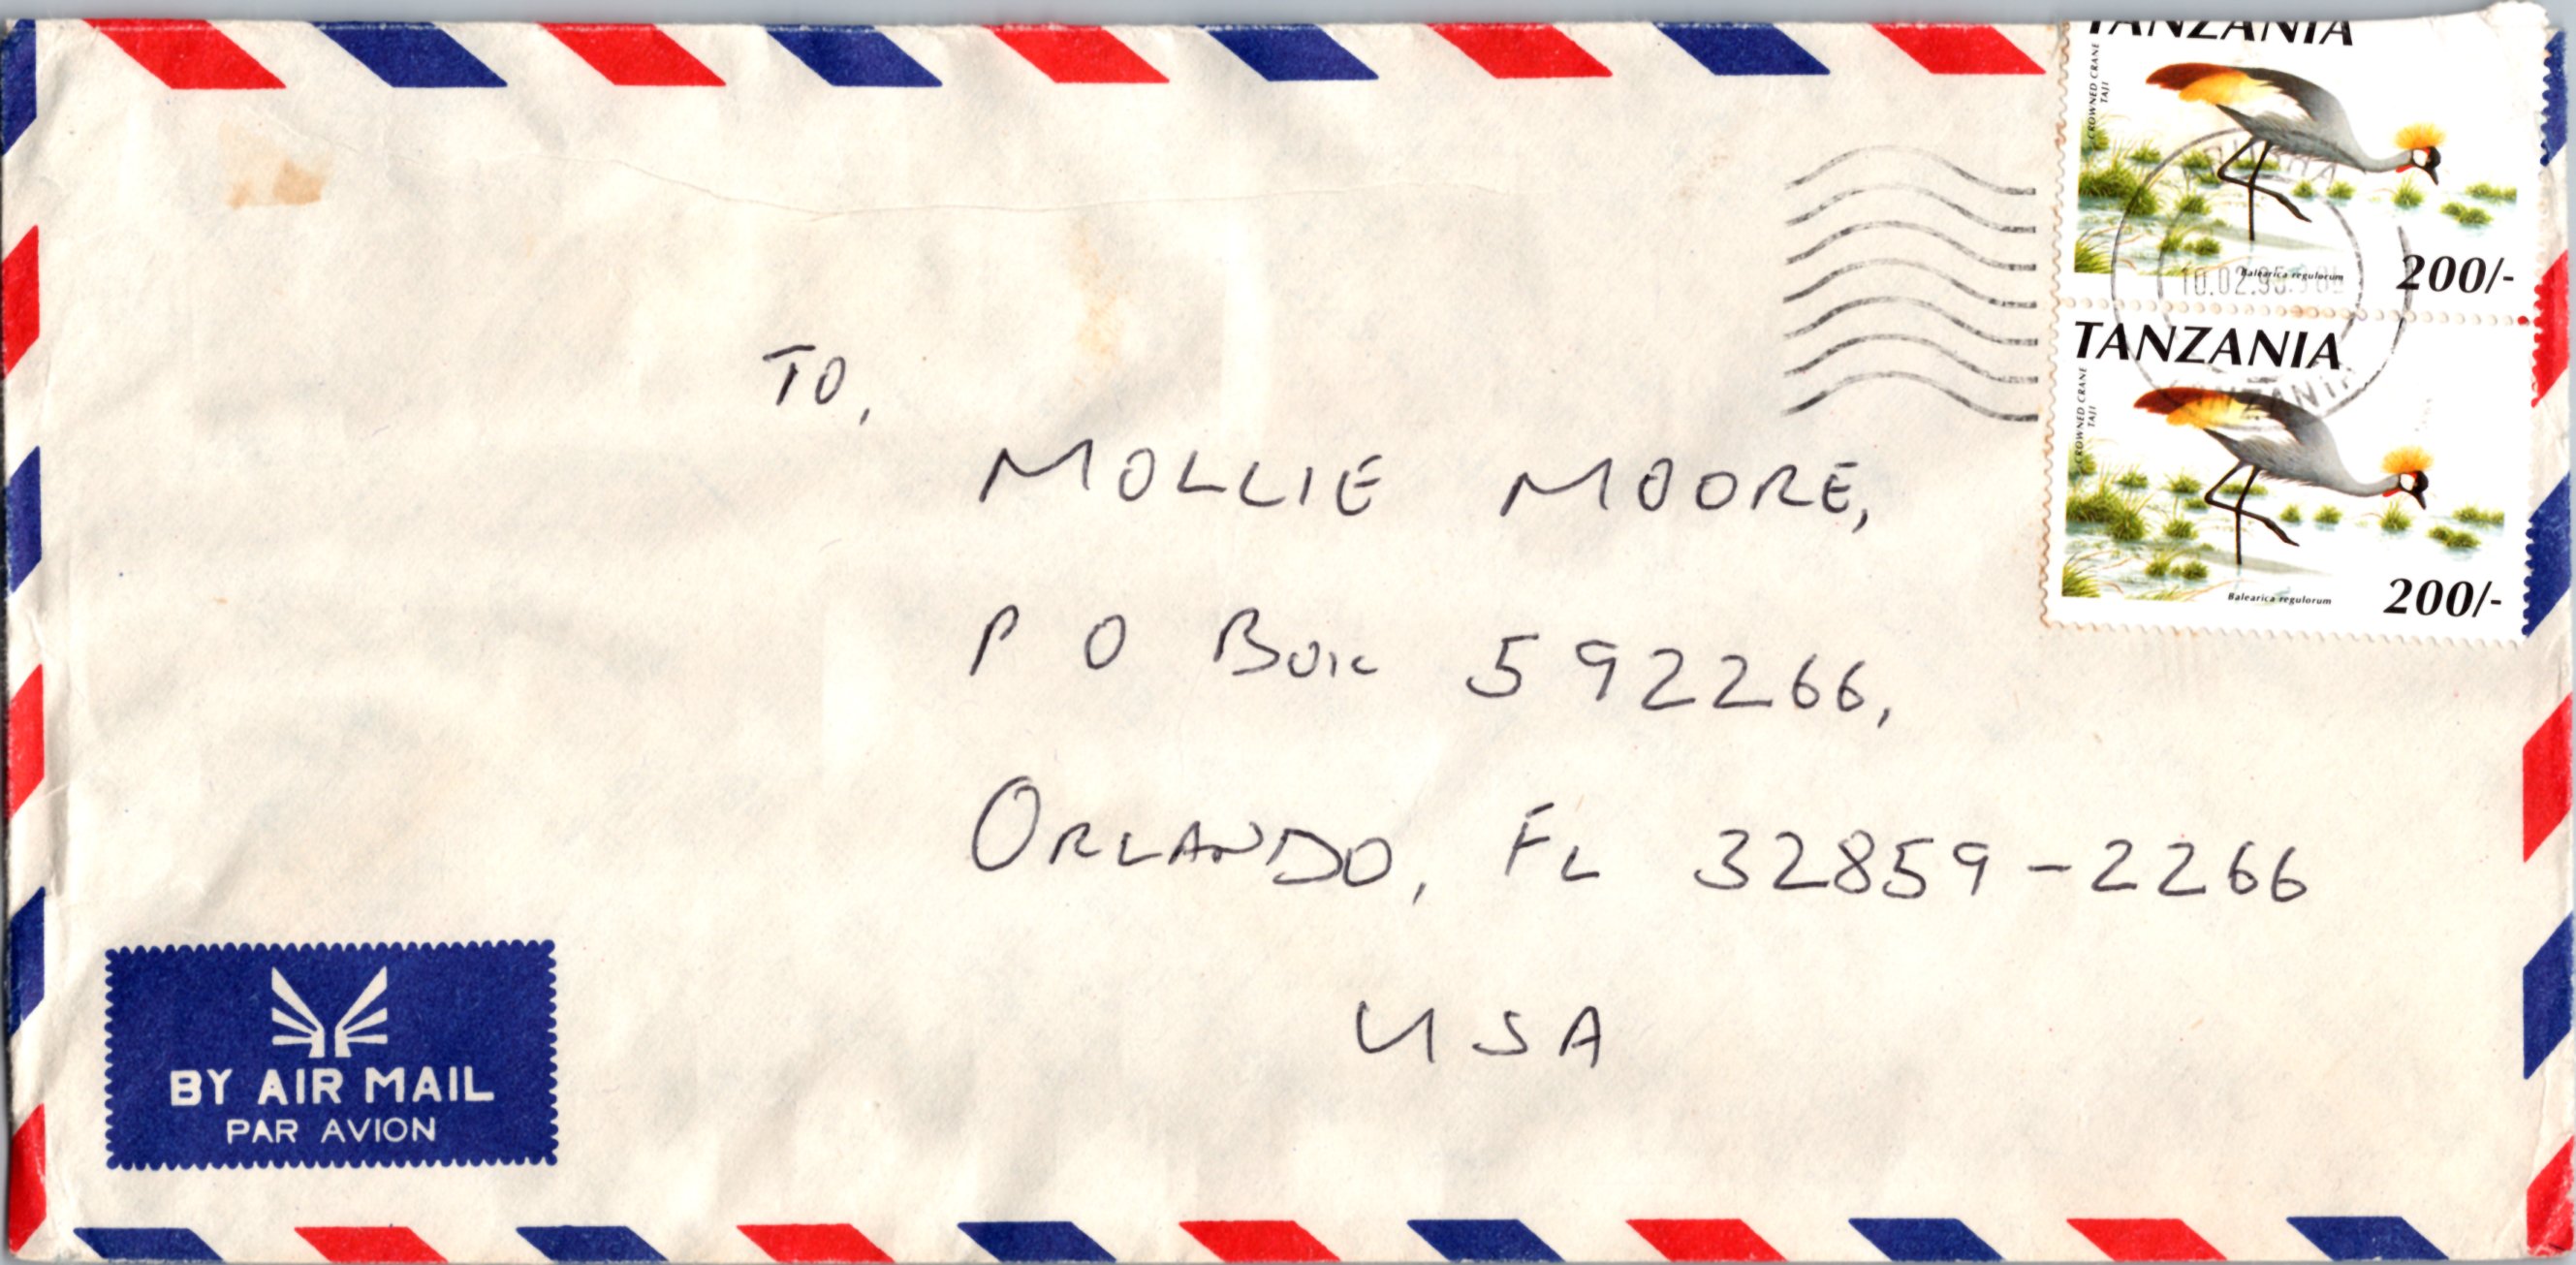 TANZANIA
CROWNED CRANE
TAJI
Balearica regulorum
200/-
10.02.95
TANZANIA
TANZANIA
CROWNED CRANE
TAJI
Balearica regulorum
200/-
TO,
MOLLIE MOORE,
P O Box 592266,
ORLANDO, FL 32859-2266
USA
BY AIR MAIL
PAR AVION